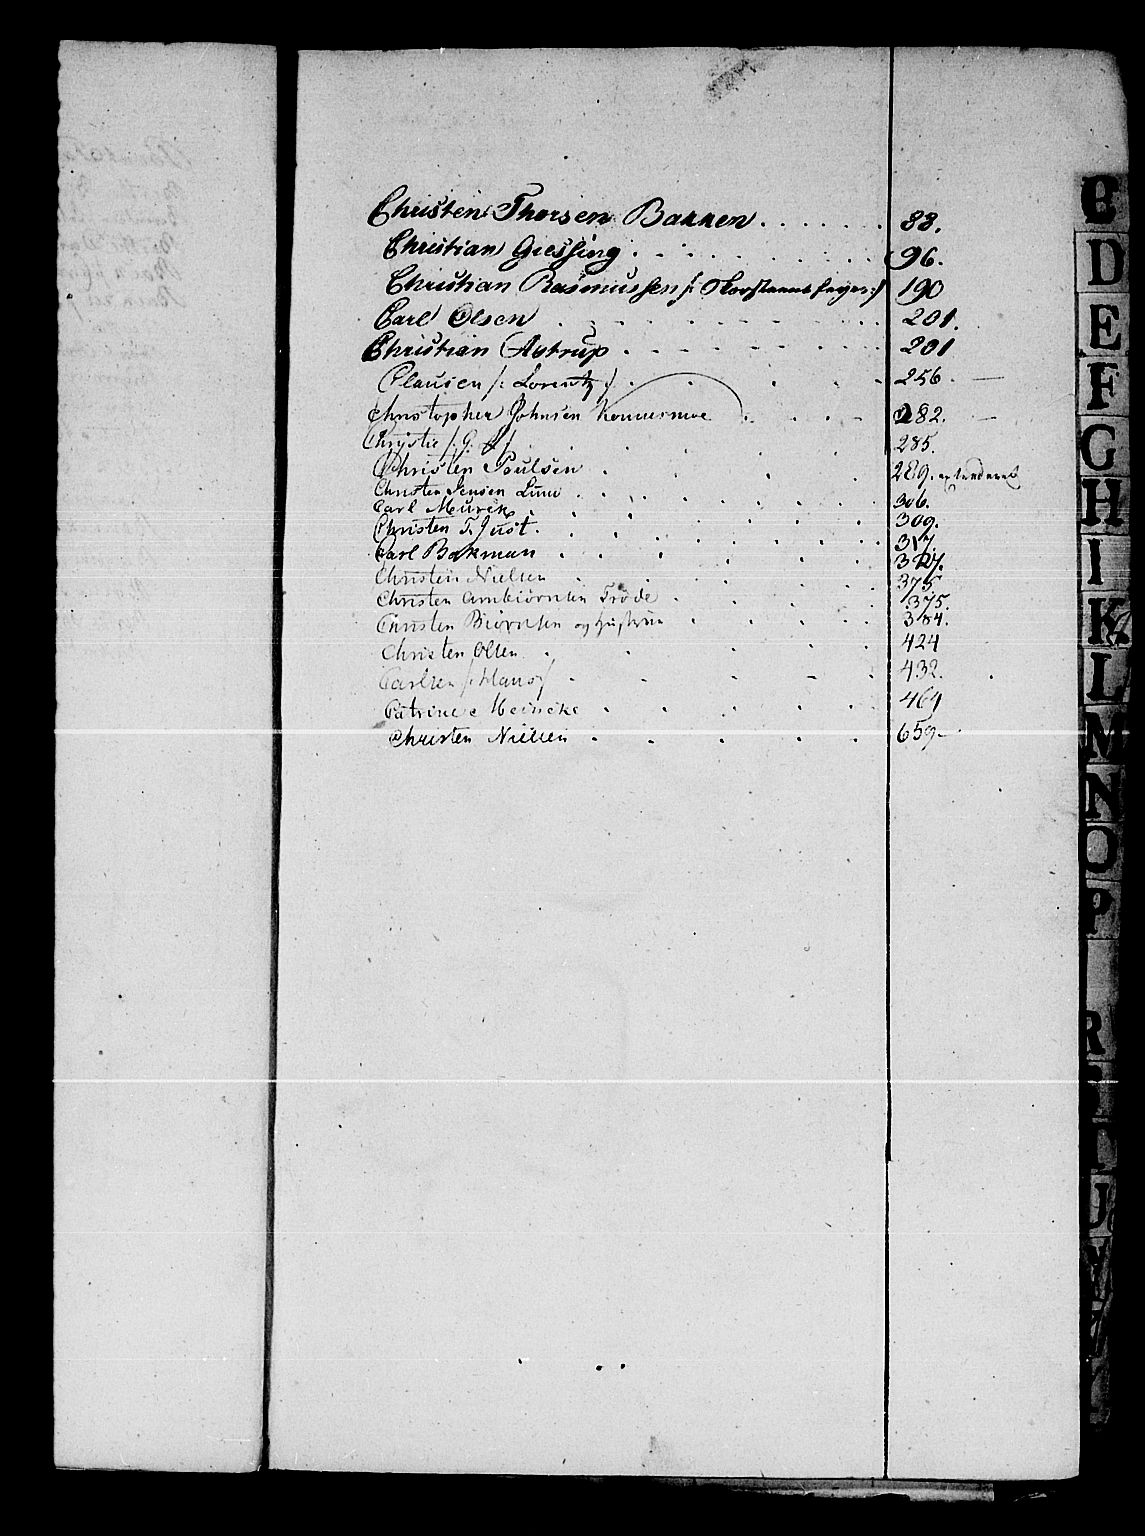 Christen Thorsen Bakken . . . . . . 88.
Christian Giessing . . . . . . . . 96.
Christian Rasmussen /: :/ 190
Carl Olsen . . . . . . . . 201.
Christian Astrup . . . . . . . . 201
Clausen /: Lorentz / . . . . . 256. —
Christopher Johnsen . . . . 282. —
Christie /: G. / . . . . . 285.
Christen Poulsen . . . . 289.
Christen Jensen Lund . . . . . 306.
Carl . . . . . 309.
Christen T. Just . . . . . . 317.
Carl Bakman . . . . . . 327.
Christen Nielsen . . . . . 375
Christen Arnbiørnsen Trøde . . . . 375.
Christen Biørnsen og Hustrue . . . . 384.
Christen Olsen . . . . . 424
Carlsen /: Hans / . . . . . 432.
Catrine Meincke . . . . . 464
Christen Nielsen . . . . . 659 —
C
D
E
F
G
H
I
K
L
M
N
O
P
R
U